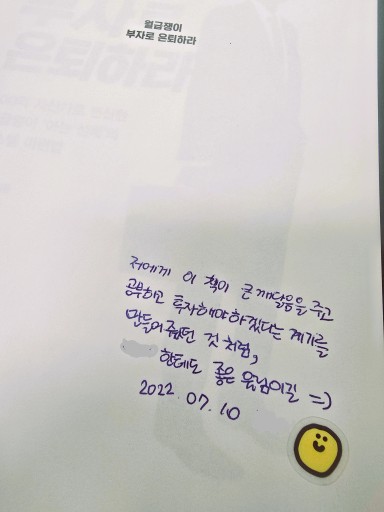 월급쟁이
부자로 은퇴하라
저에게 이 책이 큰 깨달음을 주고
공부하고 투자해야하겠다는 계기를
만들어줬던 것 처럼,
한테도 좋은 월님이길 =)
2022. 07. 10